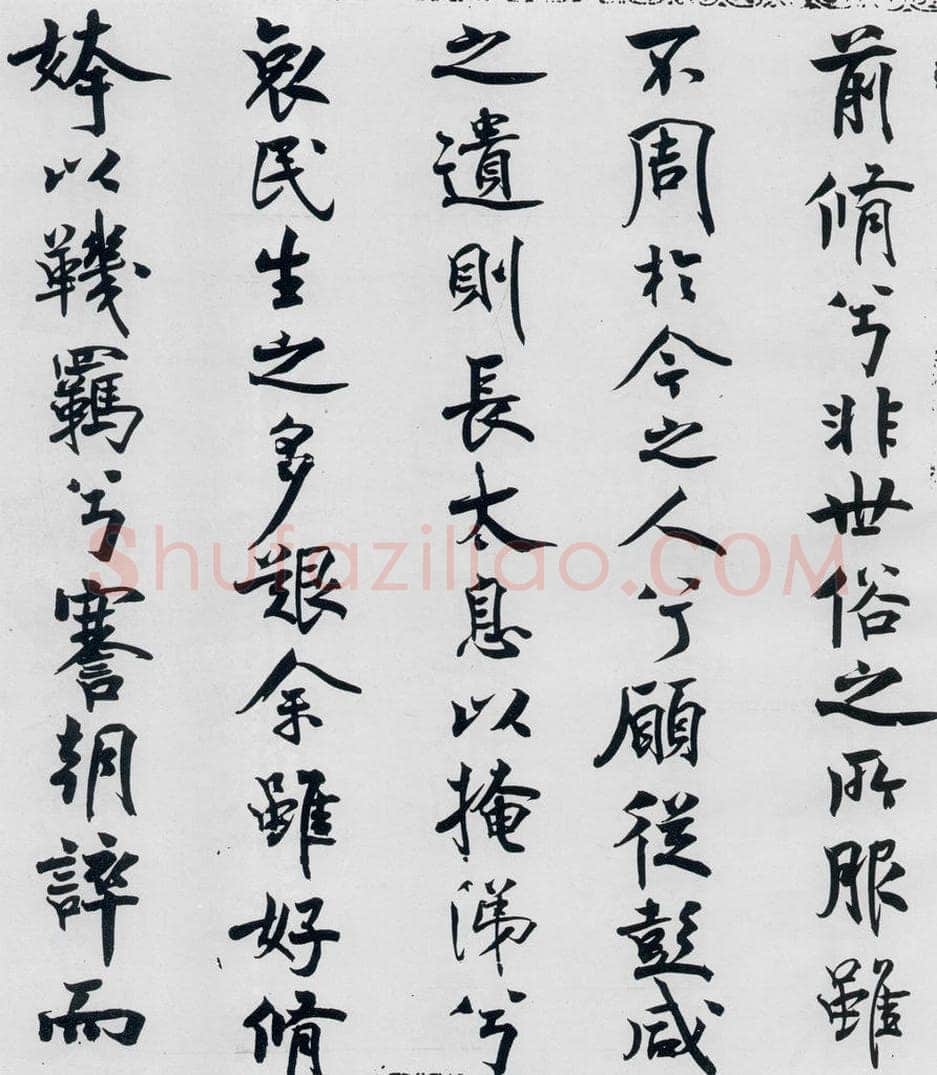 前脩兮非世俗之所服雖
不周於今之人兮願從彭咸
之遺則長太息以掩涕兮
哀民生之多艱余雖好脩
姱以鞿羈兮謇朝誶而
Shufaziliao.COM